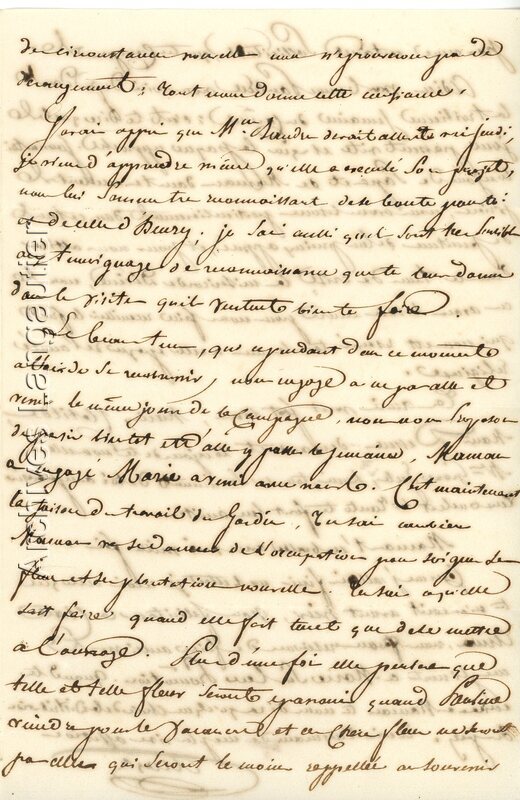 de circonstance nouvelle nous n'éprouverons pas de
dérangement; tout nous donne cette confiance.
J'avais appris que Mme devait aller te voir jeudi,
je viens d'apprendre même qu'elle a exécuté son projet,
nous lui sommes très reconnaissant de sa bonté pour toi
et de celle d'Henry, je sai aussi qu'il sont très sensible
au témoignage de reconnaissance que tu leur donne
dans la visite qu'il veulent bien te faire.
Le beau tems, qui cependant dans ce moment
a l'air de se, nous engage à
le même jour de la Campagne, nous nous proposon
de bientot et d'aller y passer la semaine, Maman
a engagé Marie a venir avec nous. C'est maintenant
la saison du travail du Jardin, tu sai combien
Maman va se donner de l'occupation pour soigner se
fleur et se plantation nouvelle. Tu sai ce qu'elle
sait faire quand elle fait tant que de se mettre
à l'ouvrage. Plus d'une foi elle pensera que
telle et telle fleur seront épanouie quand Pauline
viendra pour le vacance et ce chère fleur ne seront
pas celle qui seront le moin rappellée au souvenir
Archives Langsutier